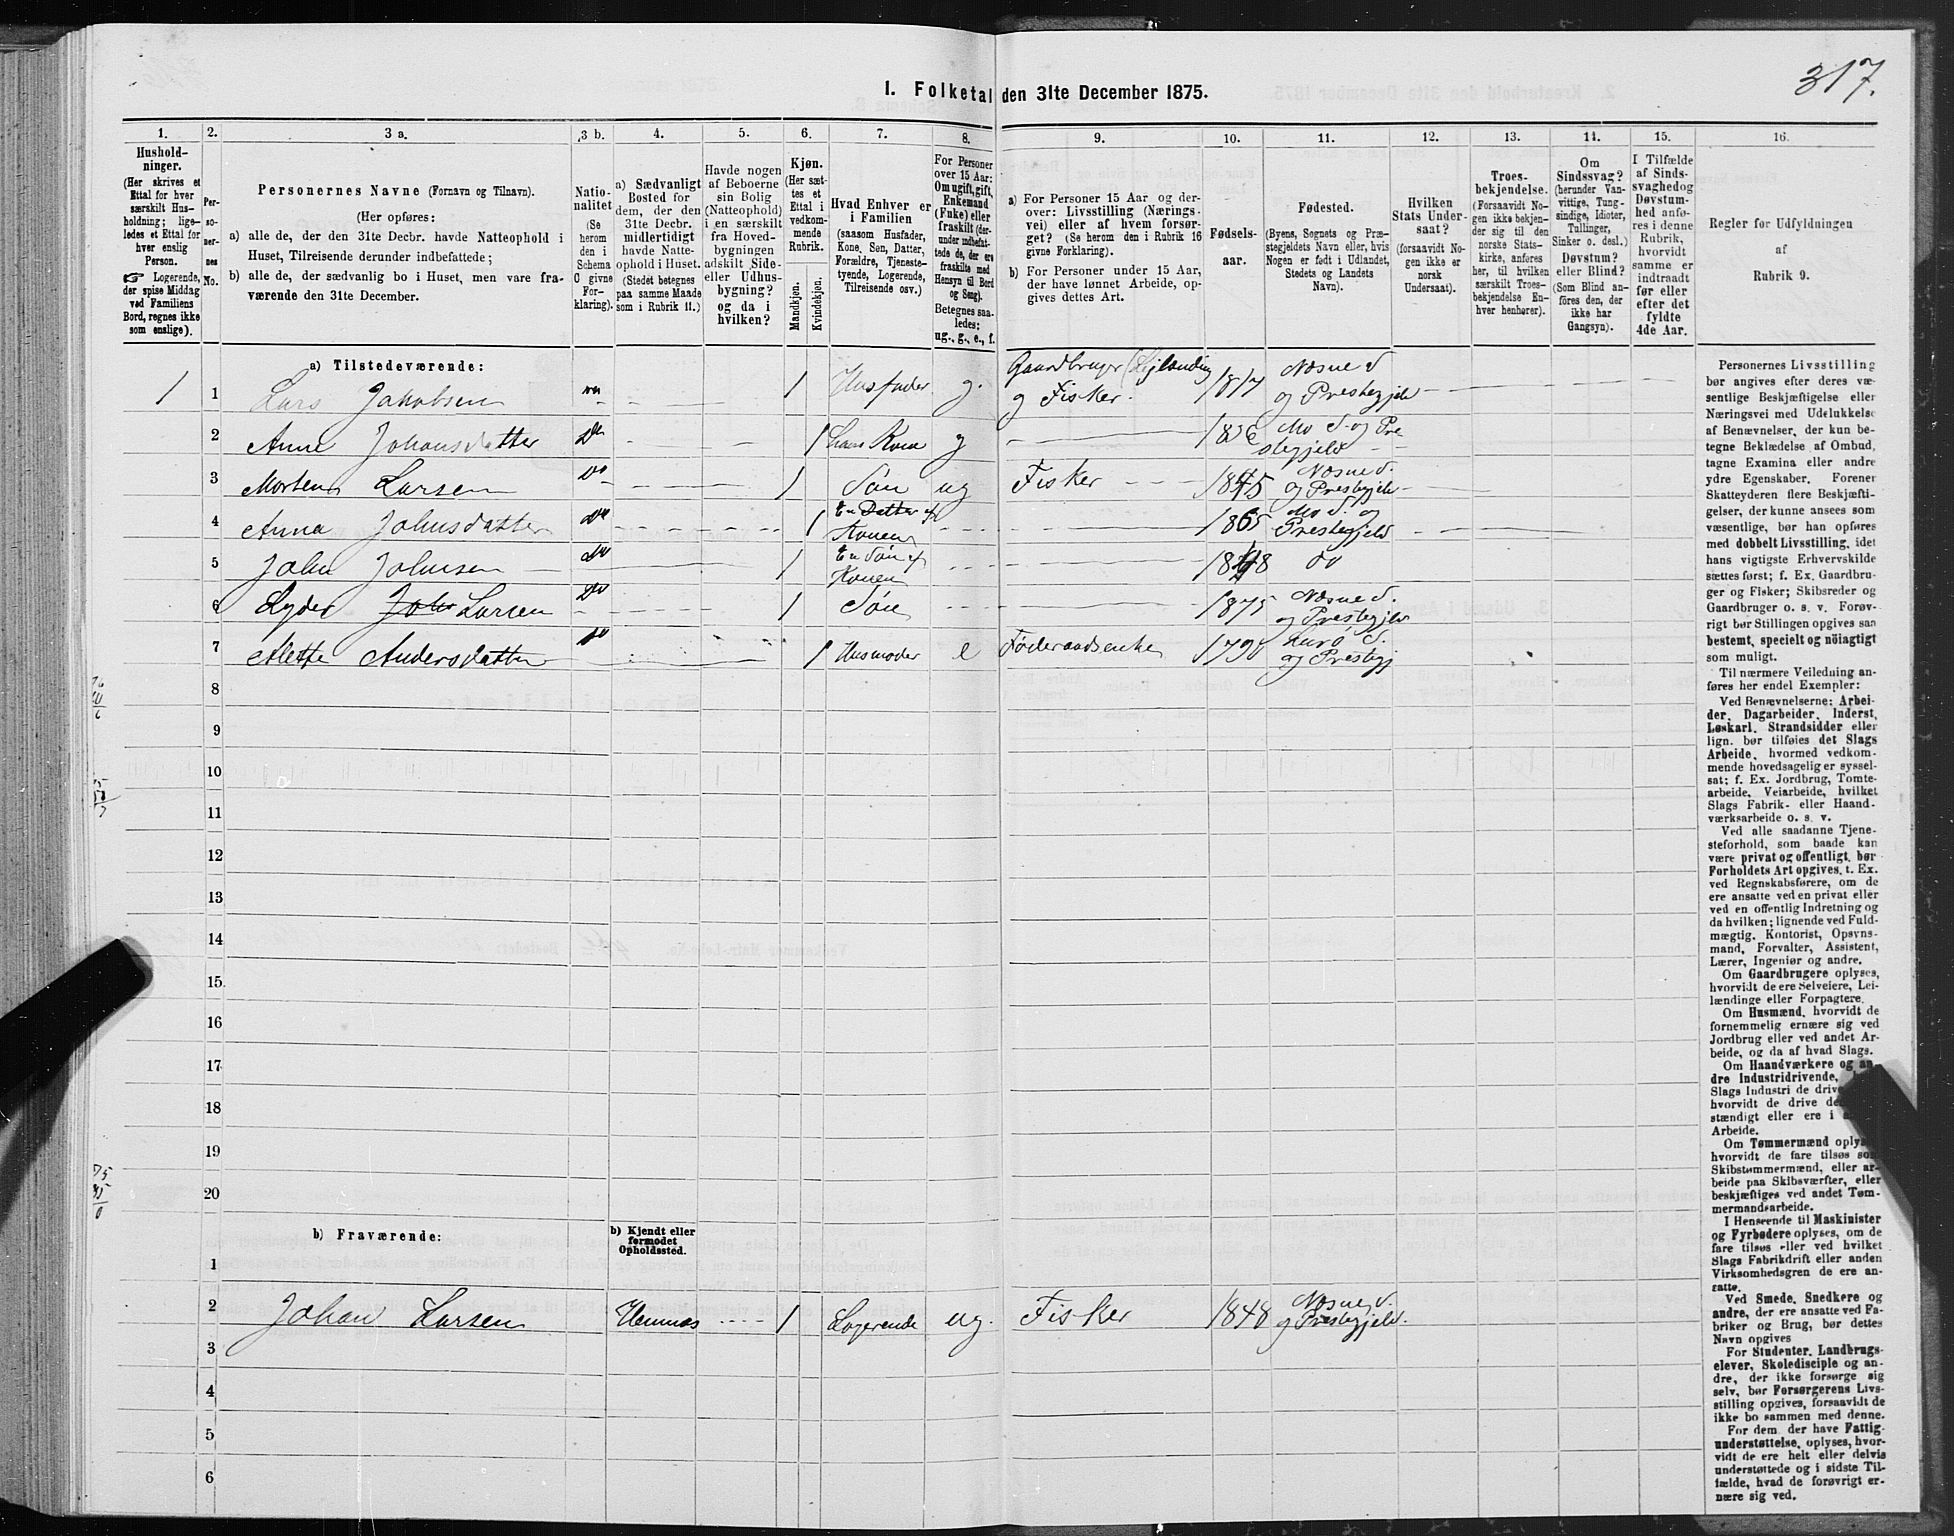 317.
1. Folketal den 31te December 1875.
1. 2. 3 a. 3 b. 4. 5. 6. 7. 8. 9. 10. 11. 12. 13. 14. 15. 16.
Hushold-
ninger.
(Her skrives et
Ettal for hver
særskilt Hus-
holdning; lige-
ledes et Ettal for
hver enslig
Person.
☞ Logerende,
der spise Middag
ved Familiens
Bord, regnes ikke
som enslige).
Per-
so-
ner-
nes
No.
Personernes Navne (Fornavn og Tilnavn).
(Her opføres:
a) alle de, der den 31te Decbr. havde Natteophold i
Huset, Tilreisende derunder indbefattede;
b) alle de, der sædvanlig bo i Huset, men vare fra-
værende den 31te December.
Natio-
nalitet
(Se
herom
den i
Schema
G givne
For-
klaring).
a) Sædvanligt
Bosted for
dem, der den
31te Decbr.
midlertidigt
havde Natte-
ophold i Huset.
(Stedet betegnes
paa samme Maade
som i Rubrik 11.)
Havde nogen
af Beboerne
sin Bolig
(Natteophold)
i en særskilt
fra Hoved-
bygningen
adskilt Side-
eller Udhus-
bygning?
og da i
hvilken?
Kjøn.
(Her sæt-
tes et
Ettal i
vedkom-
mende
Rubrik.
Mandkjøn.
Kvindekjøn.
Hvad Enhver er
i Familien
(saasom Husfader,
Kone, Søn, Datter,
Forældre, Tjeneste-
tyende, Logerende,
Tilreisende osv.)
For Personer
over 15 Aar:
Om ugift, gift,
Enkemand
(Enke) eller
fraskilt (der-
under indbefat-
tede de, der ere
fraskilte med
Hensyn til Bord
og Seng).
Betegnes saa-
ledes:
ug., g., e., f.
a) For Personer 15 Aar og der-
over: Livsstilling (Nærings-
vei) eller af hvem forsør-
get? (Se herom den i Rubrik 16
givne Forklaring).
b) For Personer under 15 Aar,
der have lønnet Arbeide, op-
gives dettes Art.
Fødsels-
aar.
Fødested.
(Byens, Sognets og Præ-
stegjeldets Navn eller, hvis
Nogen er født i Udlandet,
Stedets og Landets
Navn).
Hvilken
Stats Under-
saat?
(forsaavidt No-
gen ikke er
norsk
Undersaat).
Troes-
bekjendelse.
(Forsaavidt No-
gen ikke bekjen-
der sig til den
norske Stats-
kirke, anføres
her, til hvilken
særskilt Troes-
bekjendelse En-
hver henhører).
Om
Sindssvag?
(herunder Van-
vittige, Tung-
sindige, Idioter,
Tullinger,
Sinker o. desl.)
Døvstum?
eller Blind?
(Som Blind an-
føres den, der
ikke har
Gangsyn).
I Tilfælde
af Sinds-
svaghed og
Døvstum-
hed anfø-
res i denne
Rubrik,
hvorvidt
samme er
indtraadt
før eller
efter det
fyldte
4de Aar.
Regler for Udfyldningen
af
Rubrik 9.
a) Tilstedeværende:
1 1 Lars Jakobsen 1 Husfader g. Gaardbruger (Leilænding og Fisker. 1817 Næsne S og Prestegjeld
2 Anne Johansdatter Do 1 hans Kone g 1826 Mo S. og Prestegjeld
3 Morten Larsen Do 1 Søn ug Fisker 1845 Næsne S. og Prestegjeld
4 Anna Johnsdatter Do 1 En Datter af Konen 1865 Mo S. og Prestegjeld
5 John Johnsen Do 1 En Søn af Konen 1848 Do
6 Lyder Larsen Do 1 Søn 1875 Næsne S. og Prestegjeld
7 Alette Andersdatter Do 1 Husmoder e Føderaadsenke 1790 Lurø S. og Prestegj
8
9
10
11
12
13
14
15
16
17
18
19
20
b) Fraværende:
b) Kjendt eller
formodet
Opholdssted.
1
2 Johan Larsen Hemnæs 1 Logerende ug. Fisker 1848 Næsne S. og Prestegjeld.
3
4
5
6
Personernes Livsstilling
bør angives efter deres væ-
sentlige Beskjæftigelse eller
Næringsvei med Udelukkelse
af Benævnelser, der kun be-
tegne Beklædelse af Ombud,
tagne Examina eller andre
ydre Egenskaber. Forener
Skatteyderen flere Beskjæfti-
gelser, der kunne ansees som
væsentlige, bør han opføres
med dobbelt Livsstilling, idet
hans vigtigste Erhvervskilde
sættes først; f. Ex. Gaardbru-
ger og Fisker; Skibsreder og
Gaardbruger o. s. v. Forøv-
rigt bør Stillingen opgives saa
bestemt, specielt og nöiagtigt
som muligt.
Til nærmere Veiledning an-
føres her endel Exempler:
Ved Benævnelserne: Arbei-
der, Dagarbeider, Inderst,
Løskarl, Strandsidder eller
lign. bør tilføies det Slags
Arbeide, hvormed vedkom-
mende hovedsagelig er syssel-
sat; f. Ex. Jordbrug, Tomte-
arbeide, Veiarbeide, hvilket
Slags Fabrik- eller Haand-
værksarbeide o. s. v.
Ved alle saadanne Tjene-
steforhold, som baade kan
være privat og offentligt, bør
Forholdets Art opgives, t. Ex.
ved Regnskabsførere, om de
ere ansatte ved en privat eller
ved en offentlig Indretning og
da hvilken; lignende ved Fuld-
mægtig, Kontorist, Opsyns-
mand, Forvalter, Assistent,
Lærer, Ingeniør og andre.
Om Gaardbrugere oplyses,
hvorvidt de ere Selveiere, Lei-
lændinge eller Forpagtere.
Om Husmænd, hvorvidt de
fornemmelig ernære sig ved
Jordbrug eller ved andet Ar-
beide, og da af hvad Slags.
Om Haandværkere og an-
dre Industridrivende,
Slags Industri de drive
hvorvidt de drive
stændigt eller ere i
Arbeide.
Om Tømmermænd oplyses
hvorvidt de fare tilsøs som
Skibstømmermænd, eller ar-
beide paa Skibsværfter, eller
beskjæftiges ved andet Tøm-
mermandsarbeide.
I Henseende til Maskinister
og Fyrbødere oplyses, om de
fare tilsøs eller ved hvilket
Slags Fabrikdrift eller anden
Virksomhedsgren de ere an-
satte.
Ved Smede, Snedkere og
andre, der ere ansatte ved Fa-
briker og Brug, bør dettes
Navn opgives
For Studenter, Landbrugs-
elever, Skoledisciple og an-
dre, der ikke forsørge sig
selv, bør Forsørgerens Livs-
stilling opgives, forsaavidt de
ikke bo sammen med denne.
For dem, der have Fattig-
understøttelse, oplyses, hvor-
vidt de ere helt eller delvis
understøttede og i sidste Til-
fælde, hvad de forøvrigt er-
nære sig ved.